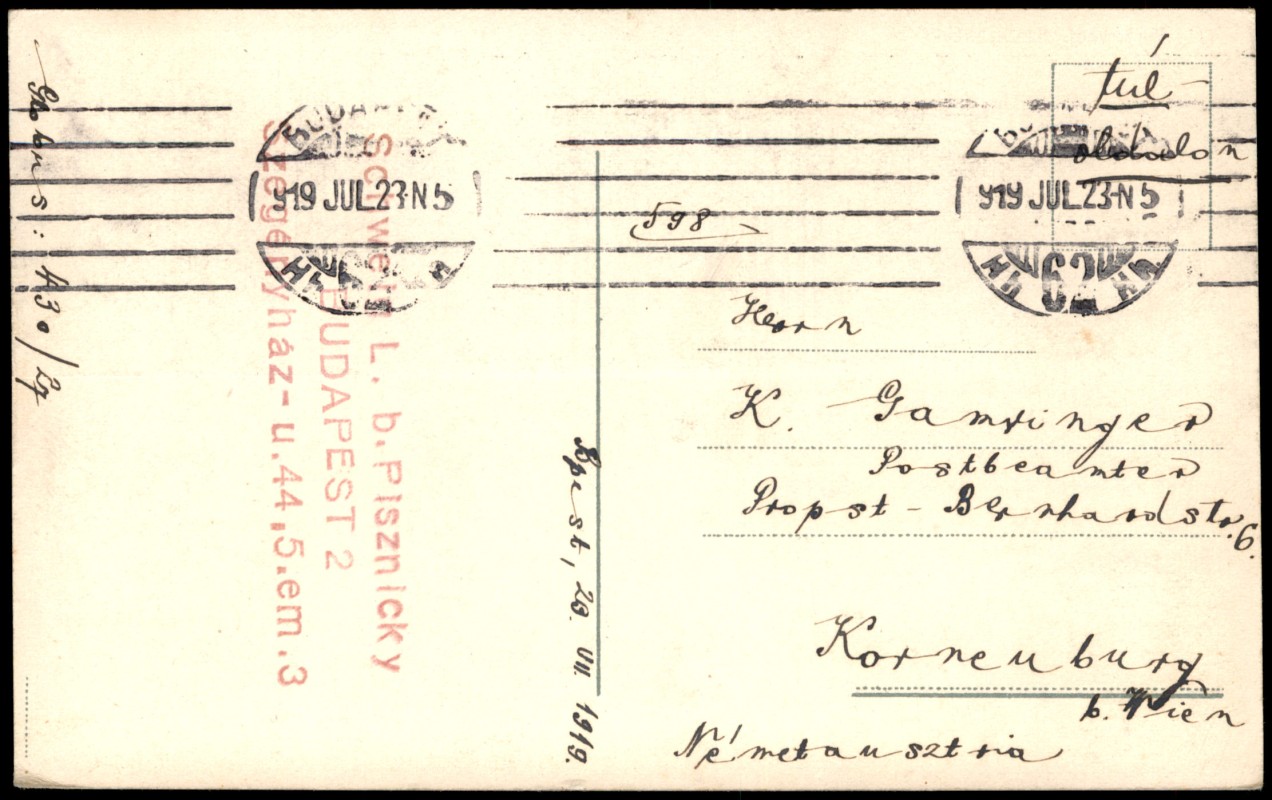 Globus: 430/Lz
BUDAPEST
919 JUL 23-N 5
62
Schwehn L. b. Plsznicky
BUDAPEST 2
Szegényház-u.44,5.em.3
Bpest, 23. VII. 1919.
túl-
oldalon
BUDAPEST
919 JUL 23-N 5
62
598
Herrn
K. Gamringer
Postbeamter
Propst-Bernhardstr. 6.
Korneuburg
b. Wien
Németausztria